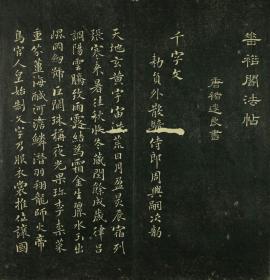 閣法帖
唐褚遂良書
千字文
勑員外散騎侍郎周興嗣次韵
天地玄黃宇宙荒日月盈昃辰宿列
張寒来暑往秋收冬藏閏餘成歲律呂
調陽雲騰致雨露結為霜金生麗水玉出
崐岡劍號巨闕珠稱夜光果珎李柰菜
重芥薑海醎河澹鱗潛羽翔龍師火帝
鳥官人皇始制文字乃服衣裳推位讓國